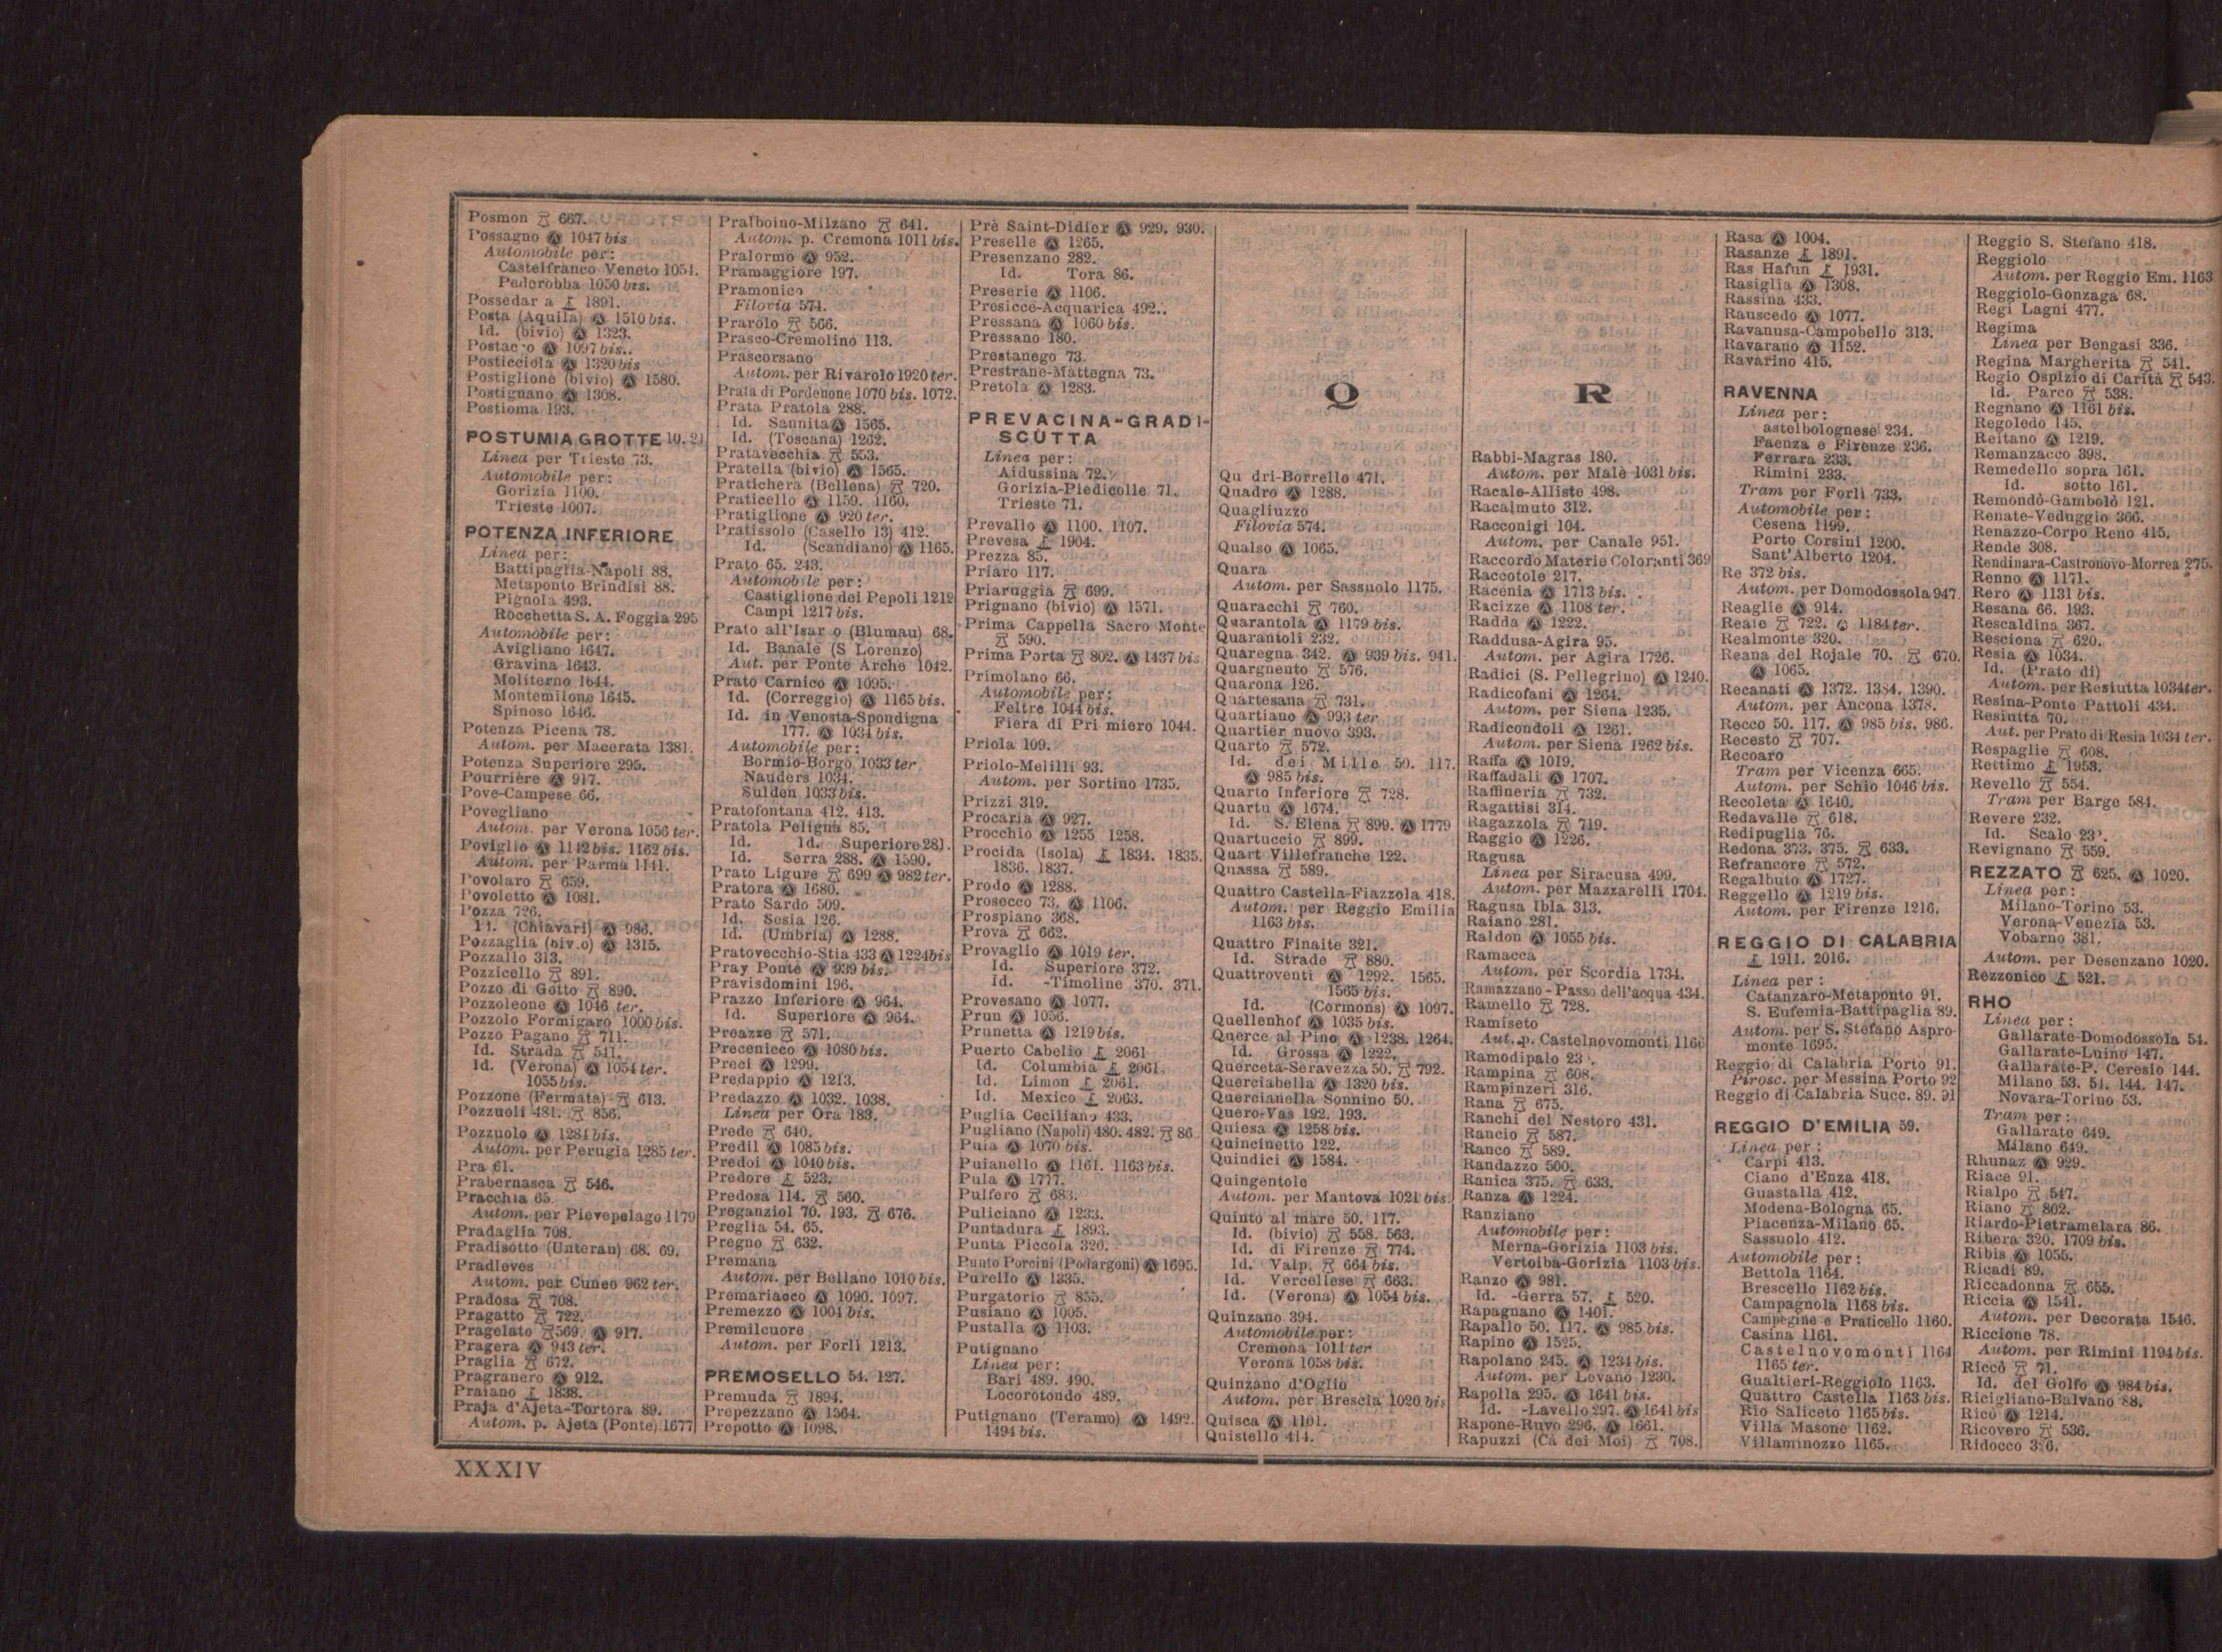 Posmon 667.
Possagno Ⓐ 1047 bis
Automobile per:
Castelfranco Veneto 1051.
Pederobba 1050 bis.
Possedar a 1891.
Posta (Aquila) Ⓐ 1510 bis.
Id. (bivio) Ⓐ 1323.
Ⓐ 1097 bis..
Posticciola Ⓐ 1320 bis
Postiglione (bivio) Ⓐ 1580.
Postignano Ⓐ 1308.
Postioma 193.
POSTUMIA GROTTE
Linea per Trieste 73.
Automobile per:
Gorizia 1100.
Trieste 1007.
POTENZA INFERIORE
Linea per:
Battipaglia-Napoli 88.
Metaponto Brindisi 88.
Pignola 493.
Rocchetta S. A. Foggia 295
Automobile per:
Avigliano 1647.
Gravina 1643.
Moliterno 1644.
Montemilone 1645.
Spinoso 1646.
Potenza Picena 78.
Autom. per Macerata 1381.
Potenza Superiore 295.
Pourrière Ⓐ 917.
Pove-Campese 66.
Povegliano
Autom. per Verona 1056 ter.
Poviglio Ⓐ 1142 bis. 1162 bis.
Autom. per Parma 1141.
Povolaro 659.
Povoletto Ⓐ 1081.
Pozza 726.
(Chiavari) Ⓐ 986.
Pozzaglia (biv.o) Ⓐ 1315.
Pozzallo 313.
Pozzicello 891.
Pozzo di Gotto 890.
Pozzoleone Ⓐ 1046 ter.
Pozzolo Formigaro 1000 bis.
Pozzo Pagano 711.
Id. Strada 541.
Id. (Verona) Ⓐ 1054 ter.
1055 bis.
Pozzone (Fermata) 613.
Pozzuoli 481. 856.
Pozzuolo Ⓐ 1284 bis.
Autom. per Perugia 1285 ter.
Pra 61.
Prabernasca 546.
Pracchia 65.
Autom. per Pievepelago 1179
Pradaglia 708.
Pradisotto (Unterau) 68. 69.
Pradleves
Autom. per Cuneo 962 ter.
Pradosa 708.
Pragatto 722.
Pragelato 569. Ⓐ 917.
Pragera Ⓐ 943 ter.
Praglia 672.
Pragranero Ⓐ 912.
Praiano 1838.
Praja d'Ajeta-Tortora 89.
Autom. p. Ajeta (Ponte) 1677
Pralboino-Milzano 641.
Autom. p. Cremona 1011 bis.
Pralormo Ⓐ 952.
Pramaggiore 197.
Pramonico
Filovia 574.
Prarolo 566.
Prasco-Cremolino 113.
Prascorsano
Autom. per Rivarolo 1920 ter.
Prata di Pordenone 1070 bis. 1072.
Prata Pratola 288.
Id. Sannita Ⓐ 1565.
Id. (Toscana) 1262.
Pratavecchia 553.
Pratella (bivio) Ⓐ 1565.
Pratichera (Bellena) 720.
Praticello Ⓐ 1159. 1160.
Pratiglione Ⓐ 920 ter.
Pratissolo (Casello 13) 412.
Id. (Scandiano) Ⓐ 1165.
Prato 65. 243.
Automobile per:
Castiglione dei Pepoli 1212
Campi 1217 bis.
Prato all'Isar o (Blumau) 68.
Id. Banale (S Lorenzo)
Aut. per Ponte Arche 1042.
Prato Carnico Ⓐ 1095.
Id. (Correggio) Ⓐ 1165 bis.
Id. in Venosta-Spondigna
177. Ⓐ 1034 bis.
Automobile per:
Bormio-Borgo 1033 ter
Nauders 1034.
Sulden 1033 bis.
Pratofontana 412. 413.
Pratola Peligna 85.
Id. Id. Superiore
Id. Serra 288. Ⓐ 1590.
Prato Ligure 699 Ⓐ 982 ter.
Pratora Ⓐ 1680.
Prato Sardo 509.
Id. Sesia 126.
Id. (Umbria) Ⓐ 1288.
Pratovecchio-Stia 433 Ⓐ 1224 bis
Pray Ponte Ⓐ 939 bis.
Pravisdomini 196.
Prazzo Inferiore Ⓐ 964.
Id. Superiore Ⓐ 964.
Preazze 571.
Precenicco Ⓐ 1080 bis.
Preci Ⓐ 1299.
Predappio Ⓐ 1213.
Predazzo Ⓐ 1032. 1038.
Linea per Ora 183.
Prede 640.
Predil Ⓐ 1085 bis.
Predoi Ⓐ 1040 bis.
Predore 523.
Predosa 114. 560.
Preganziol 70. 193. 676.
Preglia 54. 65.
Pregno 632.
Premana
Autom. per Bellano 1010 bis.
Premariacco Ⓐ 1090. 1097.
Premezzo Ⓐ 1004 bis.
Premilcuore
Autom. per Forlì 1213.
PREMOSELLO 54. 127.
Premuda 1894.
Prepezzano Ⓐ 1564.
Prepotto Ⓐ 1098.
Prè Saint-Didier Ⓐ 929. 930.
Preselle Ⓐ 1265.
Presenzano 282.
Id. Tora 86.
Preserie Ⓐ 1106.
Presicce-Acquarica 492..
Pressana Ⓐ 1060 bis.
Pressano 180.
Prestanego 73.
Prestrane-Mattegna 73.
Pretola Ⓐ 1283.
PREVACINA-GRADI-
SCUTTA
Linea per:
Aidussina 72.
Gorizia-Piedicolle 71.
Trieste 71.
Prevallo Ⓐ 1100. 1107.
Prevesa 1904.
Prezza 85.
Priaro 117.
Priaruggia 699.
Prignano (bivio) Ⓐ 1571.
Prima Cappella Sacro Monte
590.
Prima Porta 802. Ⓐ 1437 bis
Primolano 66.
Automobile per:
Feltre 1044 bis.
Fiera di Pri miero 1044.
Priola 109.
Priolo-Melilli 93.
Autom. per Sortino 1735.
Prizzi 319.
Procaria Ⓐ 927.
Procchio Ⓐ 1255 1258.
Procida (Isola) 1834. 1835.
1836. 1837.
Prodo Ⓐ 1288.
Prosecco 73. Ⓐ 1106.
Prospiano 368.
Prova 662.
Provaglio Ⓐ 1019 ter.
Id. Superiore 372.
Id. -Timoline 370. 371.
Provesano Ⓐ 1077.
Prun Ⓐ 1056.
Prunetta Ⓐ 1219 bis.
Puerto Cabello 2061
Id. Columbia 2061.
Id. Limon 2061.
Id. Mexico 2063.
Puglia Ceciliano 433.
Pugliano (Napoli) 480. 482. 86
Puia Ⓐ 1070 bis.
Puianello Ⓐ 1161. 1163 bis.
Pula Ⓐ 1777.
Pulfero 683.
Puliciano Ⓐ 1233.
Puntadura 1893.
Punta Piccola 320.
Punto Porcini (Podargoni) Ⓐ 1695.
Purello Ⓐ 1335.
Purgatorio 855.
Pusiano Ⓐ 1005.
Pustalla Ⓐ 1103.
Putignano
Linea per:
Bari 489. 490.
Locorotondo 489.
Putignano (Teramo) Ⓐ 1492.
1494 bis.
Q
Qu dri-Borrello 471.
Quadro Ⓐ 1288.
Quagliuzzo
Filovia 574.
Qualso Ⓐ 1065.
Quara
Autom. per Sassuolo 1175.
Quaracchi 760.
Quarantola Ⓐ 1179 bis.
Quarantoli 232.
Quaregna 342. Ⓐ 939 bis. 941.
Quargnento 576.
Quarona 126.
Quartesana 731.
Quartiano Ⓐ 993 ter
Quartier nuovo 393.
Quarto 572.
Id. dei Mille 50. 117.
Ⓐ 985 bis.
Quarto Inferiore 728.
Quartu Ⓐ 1674.
Id. S. Elena 899. Ⓐ 1779
Quartuccio 899.
Quart Villefranche 122.
Quassa 589.
Quattro Castella-Fiazzola 418.
Autom. per Reggio Emilia
1163 bis.
Quattro Finaite 321.
Id. Strade 880.
Quattroventi Ⓐ 1292. 1565.
1565 bis.
Id. (Cormons) Ⓐ 1097.
Quellenhof Ⓐ 1035 bis.
Querce al Pino Ⓐ 1238. 1264.
Id. Grossa Ⓐ 1222.
Querceta-Seravezza 50. 792.
Querciabella Ⓐ 1320 bis.
Quercianella Sonnino 50.
Quero-Vas 192. 193.
Quiesa Ⓐ 1258 bis.
Quincinetto 122.
Quindici Ⓐ 1584.
Quingentole
Autom. per Mantova 1021 bis
Quinto al mare 50. 117.
Id. (bivio) 558. 563.
Id. di Firenze 774.
Id. Valp. 664 bis.
Id. Vercellese 663.
Id. (Verona) Ⓐ 1054 bis.
Quinzano 394.
Automobile per:
Cremona 1011 ter
Verona 1058 bis.
Quinzano d'Oglio
Autom. per Brescia 1020 bis
Quisca Ⓐ 1101.
Quistello 414.
R
Rabbi-Magras 180.
Autom. per Malè 1031 bis.
Racale-Alliste 498.
Racalmuto 312.
Racconigi 104.
Autom. per Canale 951.
Raccordo Materie Coloranti 369
Raccotole 217.
Racenia Ⓐ 1713 bis.
Racizze Ⓐ 1108 ter.
Radda Ⓐ 1222.
Raddusa-Agira 95.
Autom. per Agira 1726.
Radici (S. Pellegrino) Ⓐ 1240.
Radicofani Ⓐ 1264.
Autom. per Siena 1235.
Radicondoli Ⓐ 1261.
Autom. per Siena 1262 bis.
Raffa Ⓐ 1019.
Raffadali Ⓐ 1707.
Raffineria 732.
Ragattisi 314.
Ragazzola 719.
Raggio Ⓐ 1226.
Ragusa
Linea per Siracusa 499.
Autom. per Mazzarelli 1704.
Ragusa Ibla 313.
Raiano 281.
Raldon Ⓐ 1055 bis.
Ramacca
Autom. per Scordia 1734.
Ramazzano - Passo dell'acqua 434.
Ramello 728.
Ramiseto
Aut. p. Castelnovomonti 1166
Ramodipalo
Rampina 608.
Rampinzeri 316.
Rana 675.
Ranchi del Nestoro 431.
Rancio 587.
Ranco 589.
Randazzo 500.
Ranica 375. 633.
Ranza Ⓐ 1224.
Ranziano
Automobile per:
Merna-Gorizia 1103 bis.
Vertoiba-Gorizia 1103 bis.
Ranzo Ⓐ 981.
Id. -Gerra 57. 520.
Rapagnano Ⓐ 1401.
Rapallo 50. 117. Ⓐ 985 bis.
Rapino Ⓐ 1525.
Rapolano 245. Ⓐ 1234 bis.
Autom. per Levano 1230.
Rapolla 295. Ⓐ 1641 bis.
Id. -Lavello 297. Ⓐ 1641 bis
Rapone-Ruvo 296. Ⓐ 1661.
Rapuzzi (Cà dei Moi) 708.
Rasa Ⓐ 1004.
Rasanze 1891.
Ras Hafun 1931.
Rasiglia Ⓐ 1308.
Rassina 433.
Rauscedo Ⓐ 1077.
Ravanusa-Campobello 313.
Ravarano Ⓐ 1152.
Ravarino 415.
RAVENNA
Linea per:
astelbolognese 234.
Faenza e Firenze 236.
Ferrara 233.
Rimini 233.
Tram per Forlì 733.
Automobile per:
Cesena 1199.
Porto Corsini 1200.
Sant'Alberto 1204.
Re 372 bis.
Autom. per Domodossola 947
Reaglie Ⓐ 914.
Reale 722. 1184 ter.
Realmonte 320.
Reana del Rojale 70. 670.
Ⓐ 1065.
Recanati Ⓐ 1372. 1384. 1390.
Autom. per Ancona 1378.
Recco 50. 117. Ⓐ 985 bis. 986.
Recesto 707.
Recoaro
Tram per Vicenza 665.
Autom. per Schio 1046 bis.
Recoleta Ⓐ 1640.
Redavalle 618.
Redipuglia 76.
Redona 373. 375. 633.
Refrancore 572.
Regalbuto Ⓐ 1727.
Reggello Ⓐ 1219 bis.
Autom. per Firenze 1216.
REGGIO DI CALABRIA
1911. 2016.
Linea per:
Catanzaro-Metaponto 91.
S. Eufemia-Battipaglia 89.
Autom. per S. Stefano Aspro-
monte 1695.
Reggio di Calabria Porto 91.
Pirosc. per Messina Porto 92
Reggio di Calabria Succ. 89. 91
REGGIO D'EMILIA 59.
Linea per:
Carpi 413.
Ciano d'Enza 418.
Guastalla 412.
Modena-Bologna 65.
Piacenza-Milano 65.
Sassuolo 412.
Automobile per:
Bettola 1164.
Brescello 1162 bis.
Campagnola 1168 bis.
Campegine e Praticello 1160.
Casina 1161.
Castelnovomonti 1164
1165 ter.
Gualtieri-Reggiolo 1163.
Quattro Castella 1163 bis.
Rio Saliceto 1165 bis.
Villa Masone 1162.
Villaminozzo 1165.
Reggio S. Stefano 418.
Reggiolo
Autom. per Reggio Em. 1163
Reggiolo-Gonzaga 68.
Regi Lagni 477.
Regima
Linea per Bengasi 336.
Regina Margherita 541.
Regio Ospizio di Carità 543.
Id. Parco 538.
Regnano Ⓐ 1161 bis.
Regoledo 145.
Reitano Ⓐ 1219.
Remanzacco 398.
Remedello sopra 161.
Id. sotto 161.
Remondò-Gambolò 121.
Renate-Veduggio 366.
Renazzo-Corpo Reno 415.
Rende 308.
Rendinara-Castronovo-Morrea 275.
Renno Ⓐ 1171.
Rero Ⓐ 1131 bis.
Resana 66. 193.
Rescaldina 367.
Resciona 620.
Resia Ⓐ 1034.
Id. (Prato di)
Autom. per Resiutta 1034 ter.
Resina-Ponte Pattoli 434.
Resiutta 70.
Aut. per Prato di Resia 1034 ter.
Respaglie 608.
Rettimo 1953.
Revello 554.
Tram per Barge 584.
Revere 232.
Id. Scalo
Revignano 559.
REZZATO 625. Ⓐ 1020.
Linea per:
Milano-Torino 53.
Verona-Venezia 53.
Vobarno 381.
Autom. per Desenzano 1020.
Rezzonico 521.
RHO
Linea per:
Gallarate-Domodossola 54.
Gallarate-Luino 147.
Gallarate-P. Ceresio 144.
Milano 53. 54. 144. 147.
Novara-Torino 53.
Tram per:
Gallarate 649.
Milano 649.
Rhunaz Ⓐ 929.
Riace 91.
Rialpo 547.
Riano 802.
Riardo-Pietramelara 86.
Ribera 320. 1709 bis.
Ribis Ⓐ 1055.
Ricadi 89.
Riccadonna 655.
Riccia Ⓐ 1541.
Autom. per Decorata 1546.
Riccione 78.
Autom. per Rimini 1194 bis.
Riccò 71.
Id. del Golfo Ⓐ 984 bis.
Ricigliano-Balvano 88.
Ricò Ⓐ 1214.
Ricovero 536.
Ridocco
XXXIV